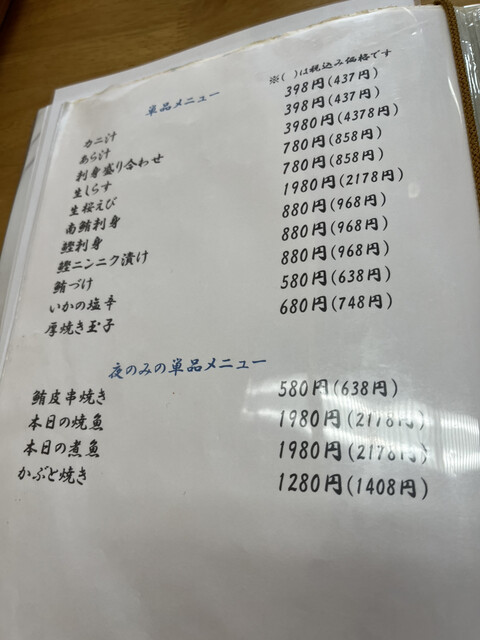 単品メニュー ※( )は税込み価格です
カニ汁 398円(437円)
あら汁 398円(437円)
刺身盛り合わせ 3980円(4378円)
生しらす 780円(858円)
生桜えび 780円(858円)
南鮪刺身 1980円(2178円)
鰹刺身 880円(968円)
鰹ニンニク漬け 880円(968円)
鮪づけ 880円(968円)
いかの塩辛 580円(638円)
厚焼き玉子 680円(748円)
夜のみの単品メニュー
鮪皮串焼き 580円(638円)
本日の焼魚 1980円(2178円)
本日の煮魚 1980円(2178円)
かぶと焼き 1280円(1408円)